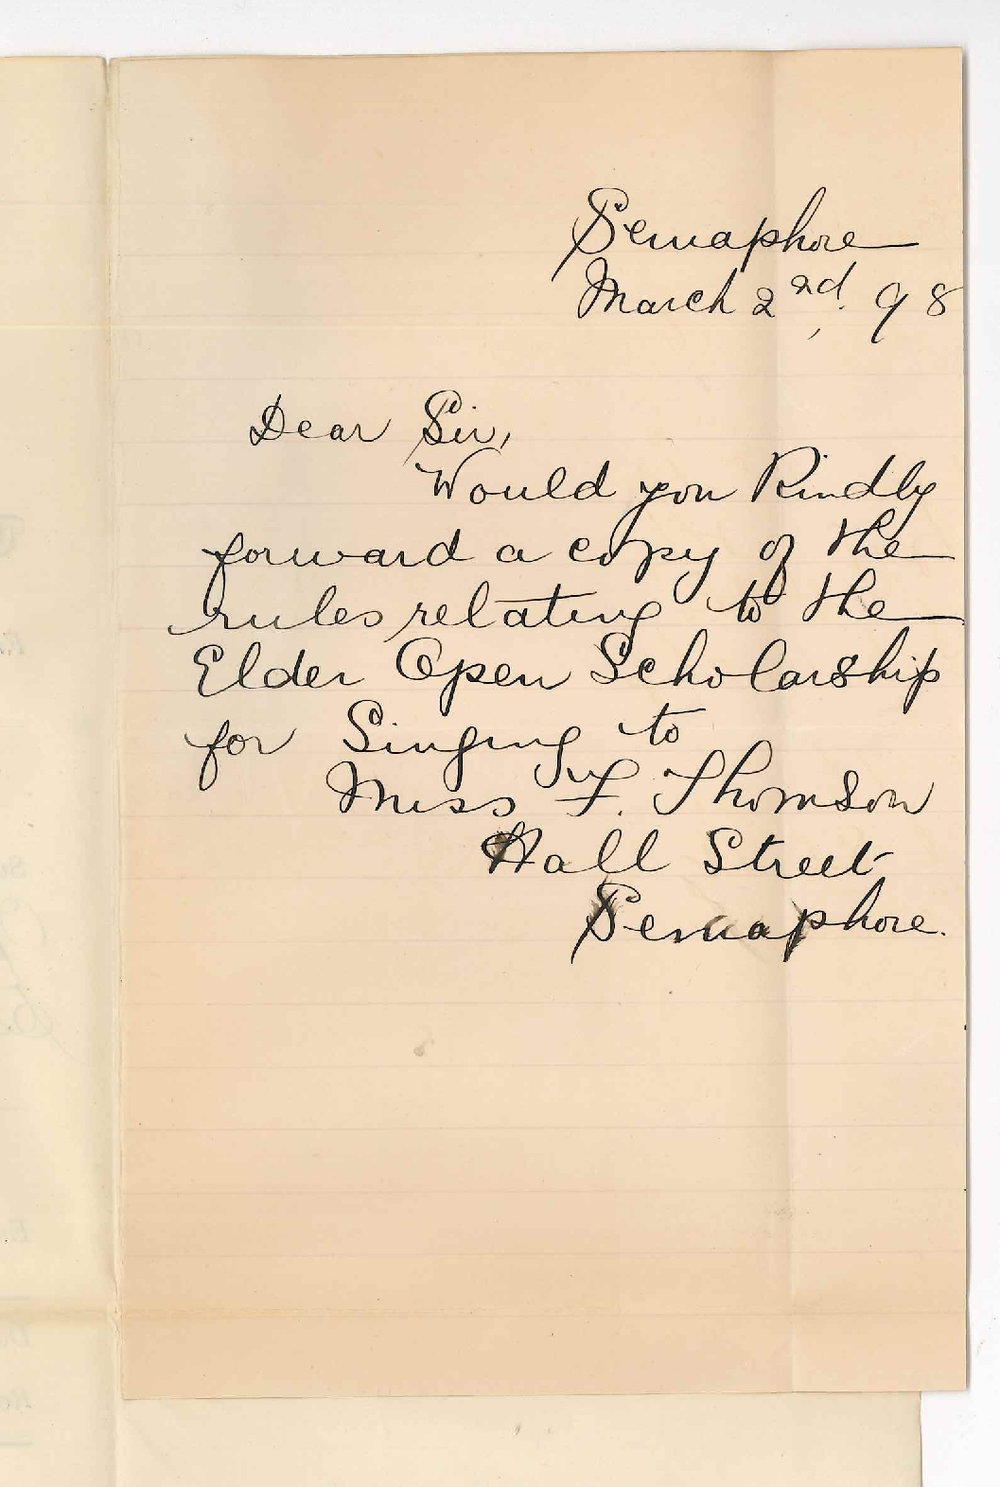 Semaphore
March 2nd. 98
Dear Sir,
Would you Kindly
forward a copy of the
rules relating to the
Elder Open Scholarship
for Singing to
Miss F. Thomson
Hall Street
Semaphore.